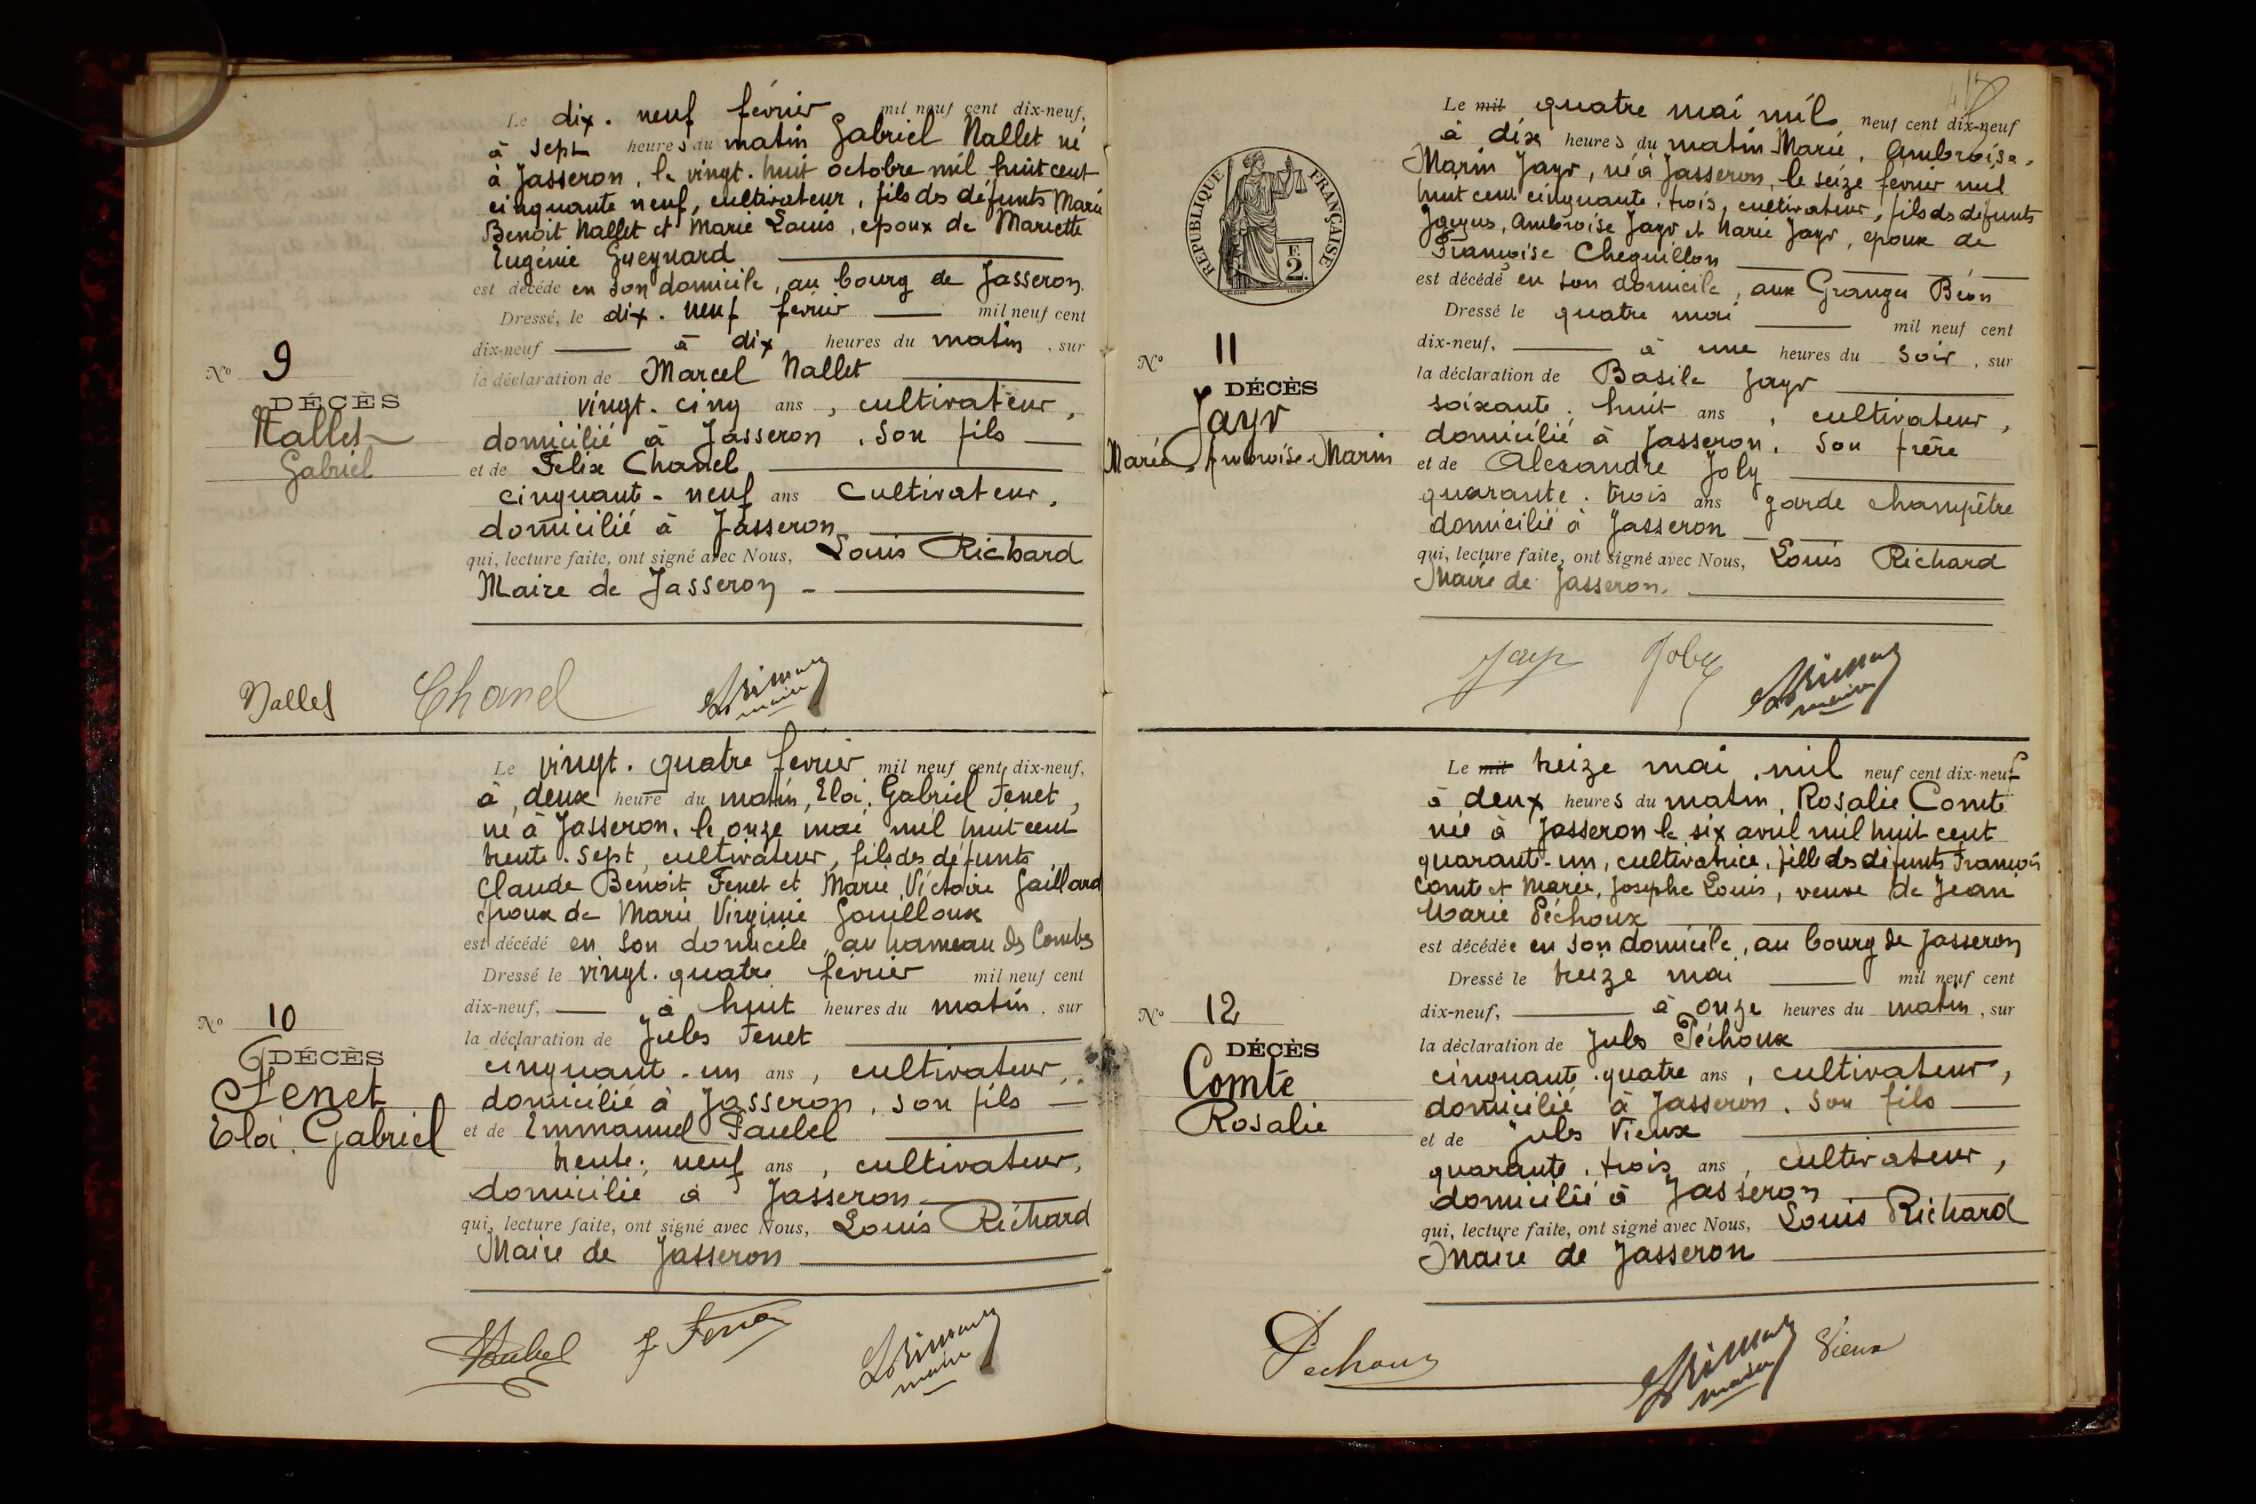 Le dix. neuf février mil neuf cent dix-neuf,
à sept heures du matin Gabriel Nallet né
à Jasseron, le vingt. huit octobre mil huit cent
cinquante neuf, cultivateur, fils des défunts Marie
Benoit Nallet et Marie Louis, époux de Mariette
Eugénie Gueynard
est décédé en son domicile, au bourg de Jasseron.
Dressé, le dix. neuf février mil neuf cent
dix-neuf à dix heures du matin, sur
la déclaration de Marcel Nallet
vingt. cinq ans, cultivateur,
domicilié à Jasseron, son fils
et de Felix Chanel
cinquante - neuf ans cultivateur,
domicilié à Jasseron
qui, lecture faite, ont signé avec Nous, Louis Richard
Maire de Jasseron -
No 9
DÉCÈS
Nallet
Gabriel
Nallet Chanel
maire
Le vingt. quatre février mil neuf cent dix-neuf,
à deux heure du matin, Eloi. Gabriel Fenet,
né à Jasseron, le onze mai mil huit cent
trente. sept, cultivateur, fils des défunts
Claude Benoit Fenet et Marie Victoire Gaillard
époux de Marie Virginie Gouilloux
est décédé en son domicile, au hameau des Combes
Dressé le vingt. quatre février mil neuf cent
dix-neuf, à huit heures du matin, sur
la déclaration de Jules Fenet
cinquante - un ans, cultivateur,
domicilié à Jasseron, son fils
et de Emmanuel Faubel
trente. neuf ans, cultivateur,
domicilié à Jasseron
qui, lecture faite, ont signé avec Nous, Louis Richard
Maire de Jasseron
No 10
DÉCÈS
Fenet
Eloi. Gabriel
maire
RÉPUBLIQUE FRANÇAISE
F.
2.
Le mil quatre mai mil neuf cent dix-neuf
à dix heures du matin Marie. Ambroise.
Marin Jayr, né à Jasseron, le seize février mil
huit cent cinquante. trois, cultivateur, fils des défunts
Jacques, Ambroise Jayr et Marie Jayr, époux de
Françoise Cheguillon
est décédé en son domicile, aux Granges Béon
Dressé le quatre mai mil neuf cent
dix-neuf, à une heures du soir, sur
la déclaration de Basile Jayr
soixante. huit ans, cultivateur,
domicilié à Jasseron, son frère
et de Alexandre Joly
quarante. trois ans garde champêtre
domicilié à Jasseron
qui, lecture faite, ont signé avec Nous, Louis Richard
Maire de Jasseron.
No 11
DÉCÈS
Jayr
Marie. Ambroise. Marin
Jayr Joly
maire
Le mil treize mai mil neuf cent dix-neuf
à deux heures du matin, Rosalie Comte
née à Jasseron le six avril mil huit cent
quarante-un, cultivatrice, fille des défunts François
Comte et Marie, Josephe Louis, veuve de Jean
Marie Péchoux
est décédée en son domicile, au bourg de Jasseron
Dressé le treize mai mil neuf cent
dix-neuf, à onze heures du matin, sur
la déclaration de Jules Péchoux
cinquante. quatre ans, cultivateur,
domicilié à Jasseron. son fils
et de Jules Vieux
quarante. trois ans, cultivateur,
domicilié à Jasseron
qui, lecture faite, ont signé avec Nous, Louis Richard
Maire de Jasseron
No 12
DÉCÈS
Comte
Rosalie
Pechoux maire Vieux